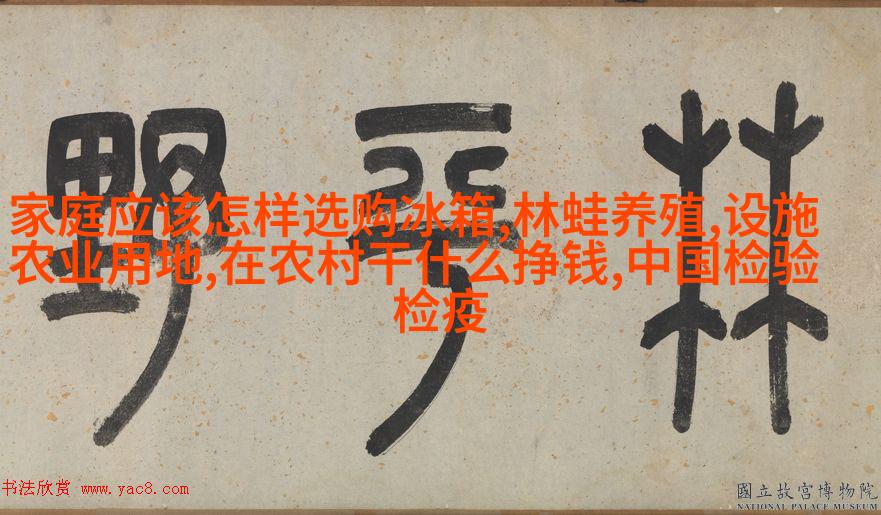 林平野
家庭应该怎样选购冰箱,林蛙养殖,设施
农业用地,在农村干什么挣钱,中国检验
检疫
书法欣赏 www.yac8.com
國立故宮博物院
NATIONAL PALACE MUSEUM